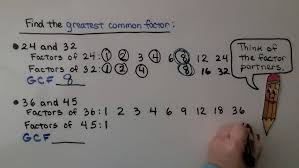 Find the greatest common factor:
• 24 and 32
Factors of 24: 1 2 3 4 6 8 12 24
Factors of 32: 1 2 4 8 16 32
GCF 8
Think of the factor partners.
• 36 and 45
Factors of 36: 1 2 3 4 6 9 12 18 36
Factors of 45: 1
GCF